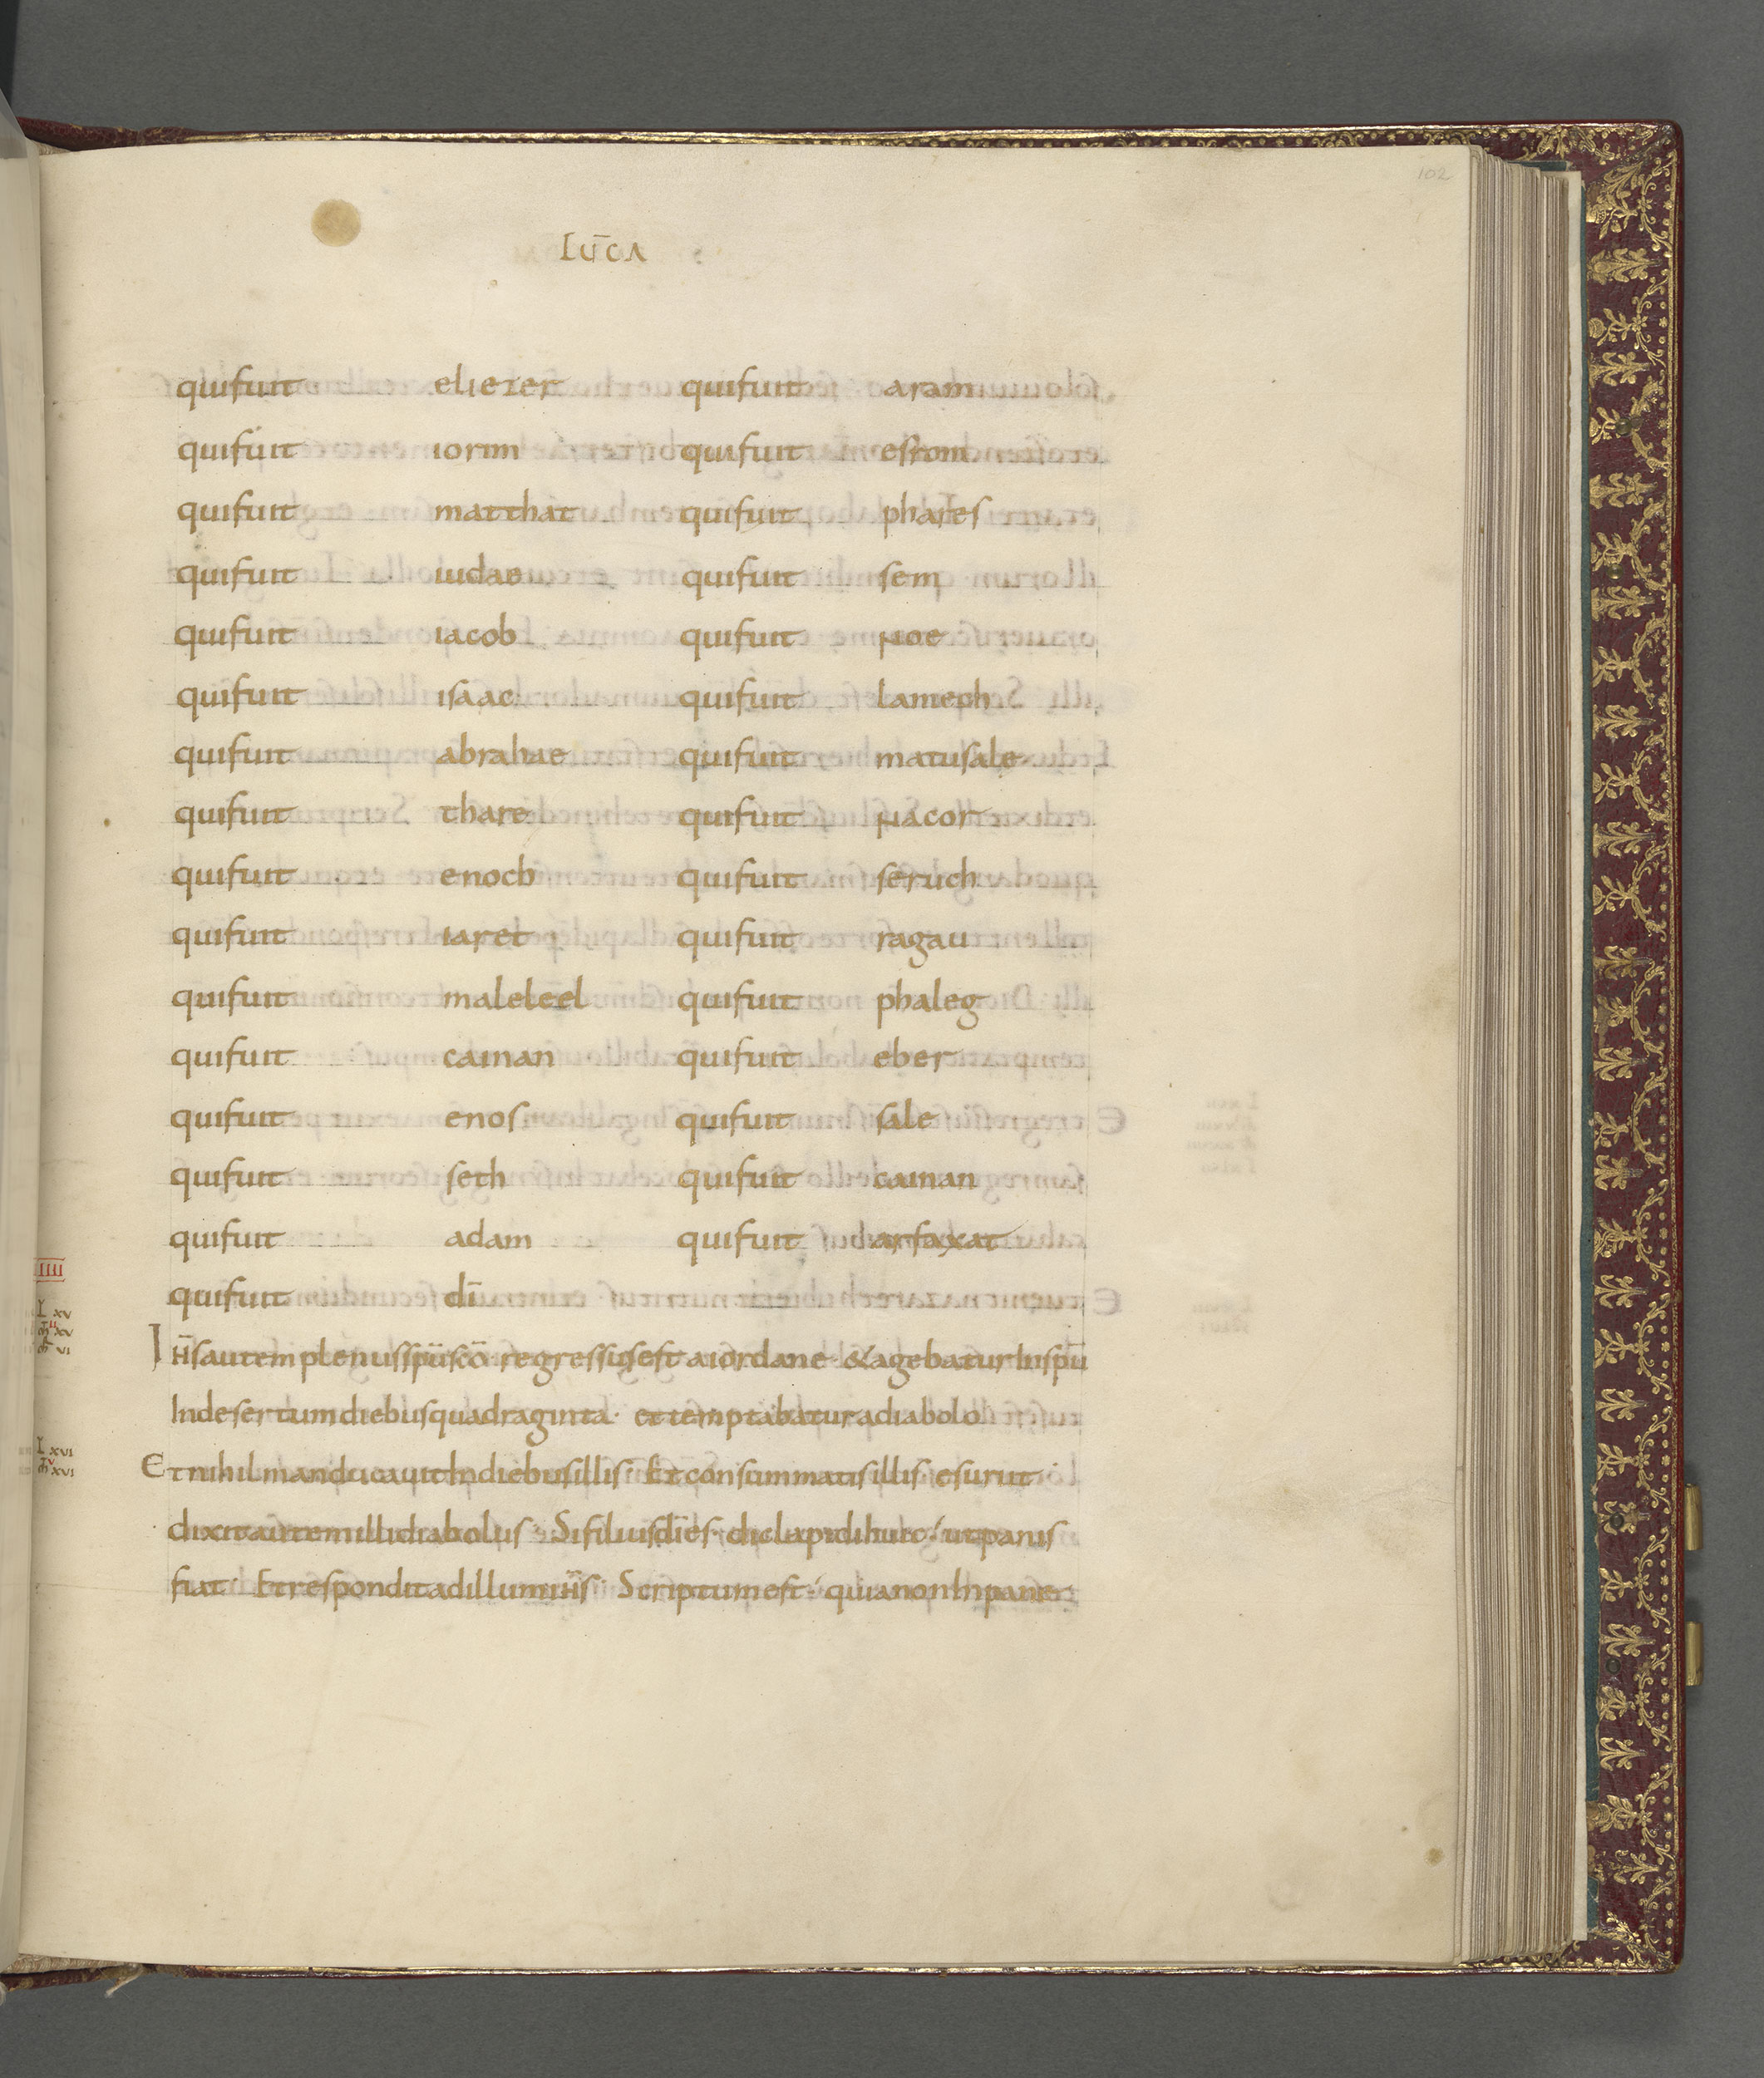 102
LUCA
qui fuit eliezer qui fuit aram
qui fuit iorim qui fuit esrom
qui fuit matthat qui fuit phares
qui fuit iudae qui fuit sem
qui fuit iacob qui fuit noe
qui fuit isaac qui fuit lamech
qui fuit abrahae qui fuit matusale
qui fuit thare qui fuit nacor
qui fuit enoch qui fuit seruch
qui fuit iaret qui fuit ragau
qui fuit maleleel qui fuit phaleg
qui fuit cainan qui fuit eber
qui fuit enos qui fuit sale
qui fuit seth qui fuit cainan
qui fuit adam qui fuit arfaxat
qui fuit dī
IHS autem plenus spū scō regressus est a iordane & agebatur In spū
In desertum diebus quadraginta · et temptabatur a diabolo
Et nihil manducauit In diebus illis · Et consummatis illis esuriit ·
dixit autem illi diabolus · Si filius dī es · dic lapidi huic · ut panis
fiat · Et respondit ad illum ihs · Scriptum est · quia non In pane